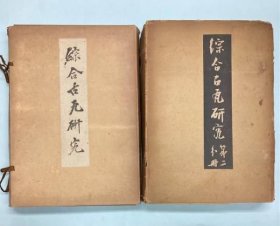 綜合古瓦研究
綜合古瓦研究
第二分冊